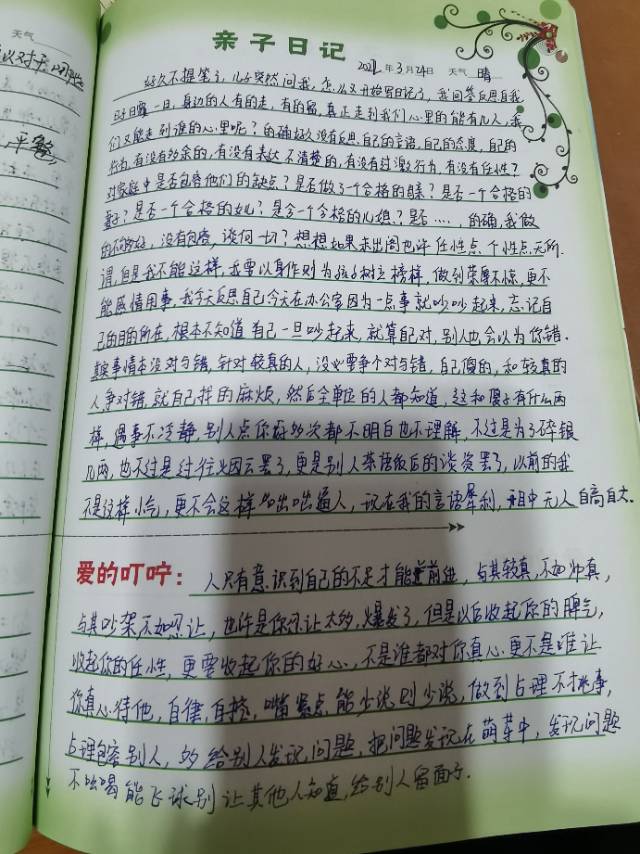 天气
亲子日记
2022年3月24日 天气 晴
好久不提笔了,儿子突然问我,怎么又开始写日记了,我回答反思自我
时日 一日,身边的人有的走,有的留,真正走到我们心里的能有几人,我
们又能走到谁的心里呢?的确好久没有反思自己的言语,自己的态度,自己的
行为,有没有多余的,有没有表达不清楚的,有没有过激行为,有没有任性?
对家庭中是否包容他们的缺点?是否做了一个合格的母亲?是否一个合格的
妻子?是否一个合格的女儿?是否一个合格的儿媳?是否....,的确,我做
的不够好,没有包容,谈何一切?想想如果未出阁也许任性点,个性点无所
谓,但是我不能这样,我要以身作则为孩子树立榜样,做到荣辱不惊,更不
能感情用事,我今天反思自己今天在办公室因为一点事就吵吵起来,忘记自
己的目的所在,根本不知道自己一旦吵起来,就算自己对,别人也会以为你错.
其实事情本没对与错,针对较真的人,没必要争个对与错,自己傻的,和较真的
人争对错,就自己找的麻烦,然后全单位的人都知道,这和傻子有什么两
样,遇事不冷静,别人点你好多次都不明白也不理解,不过是为了碎银
几两,也不过是过往火因云罢了,更是别人茶语饭后的谈资罢了,以前的我
不是这样小气,更不会这样咄咄逼人,现在我的言语犀利,目中无人自高自大.
爱的叮咛:
人只有意识到自己的不足才能前进,与其较真,不如归真,
与其吵架不如忍让,也许是你忍让太多,爆发了,但是以后收起你的脾气,
收起你的任性,更要收起你的好心,不是谁都对你真心,更不是谁让
你真心待他,自律,自控,嘴紧点,能少说则少说,做到占理不挑事,
占理包容别人,多给别人发现问题,把问题发现在萌芽中,发现问题
不吆喝能 别让其他人知道,给别人留面子.